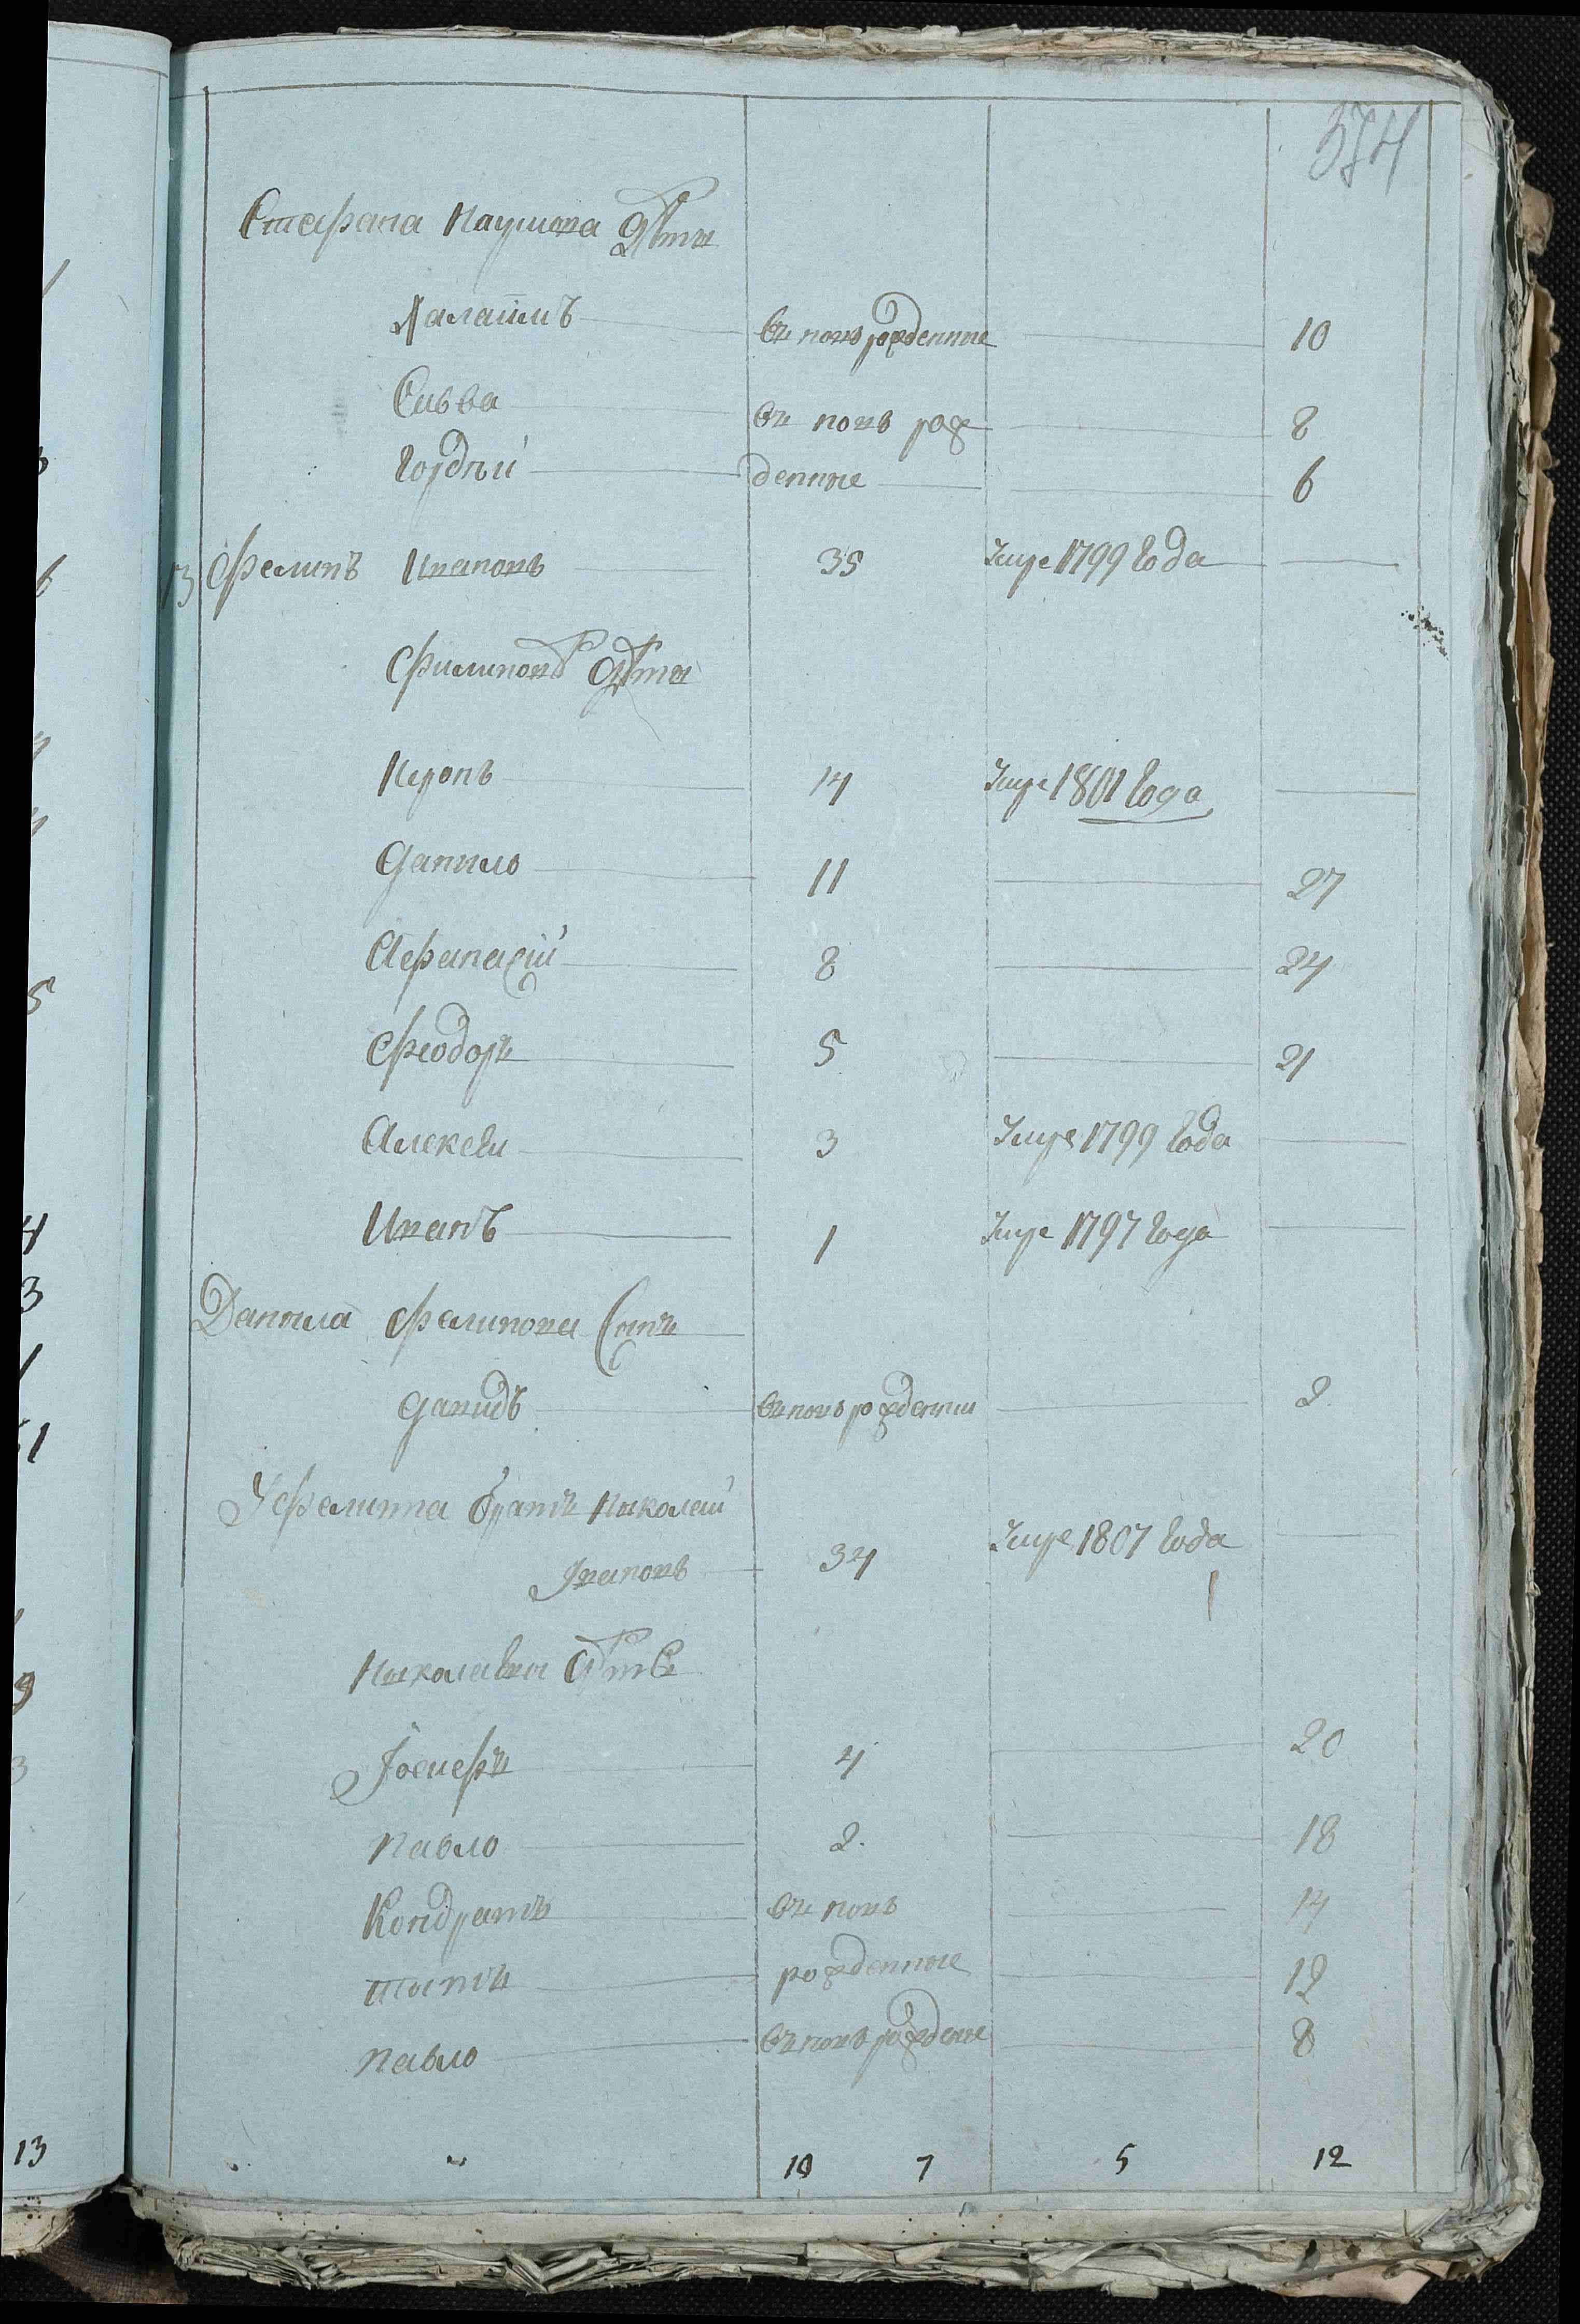 374
Стефана Наумова Дѣти
Галатинъ вновь рожденные 10
Савва вновь рож 8
Гордѣй денные 6
3 Фелипъ Ивановъ 35 Умре 1799 Года
Филиповѣ Дѣти
Неронъ 14 Умре 1801 Года
Данило 11 27
Афанасий 8 24
Феодоръ 5 21
Алексѣи 3 Умре 1799 Года
Иванъ 1 Умре 1797 Года
Данила Фелипова Сынъ
Давидъ вновь рожденни 2
У Фелиппа братъ Николай
Ивановъ 34 Умре 1807 Года
Николаевы Дѣти
Іосифъ 4 20
Павло 2. 18
Кондратъ вновь 14
рожденные 12
Павло вновь рождене 8
10 7 5 12
13